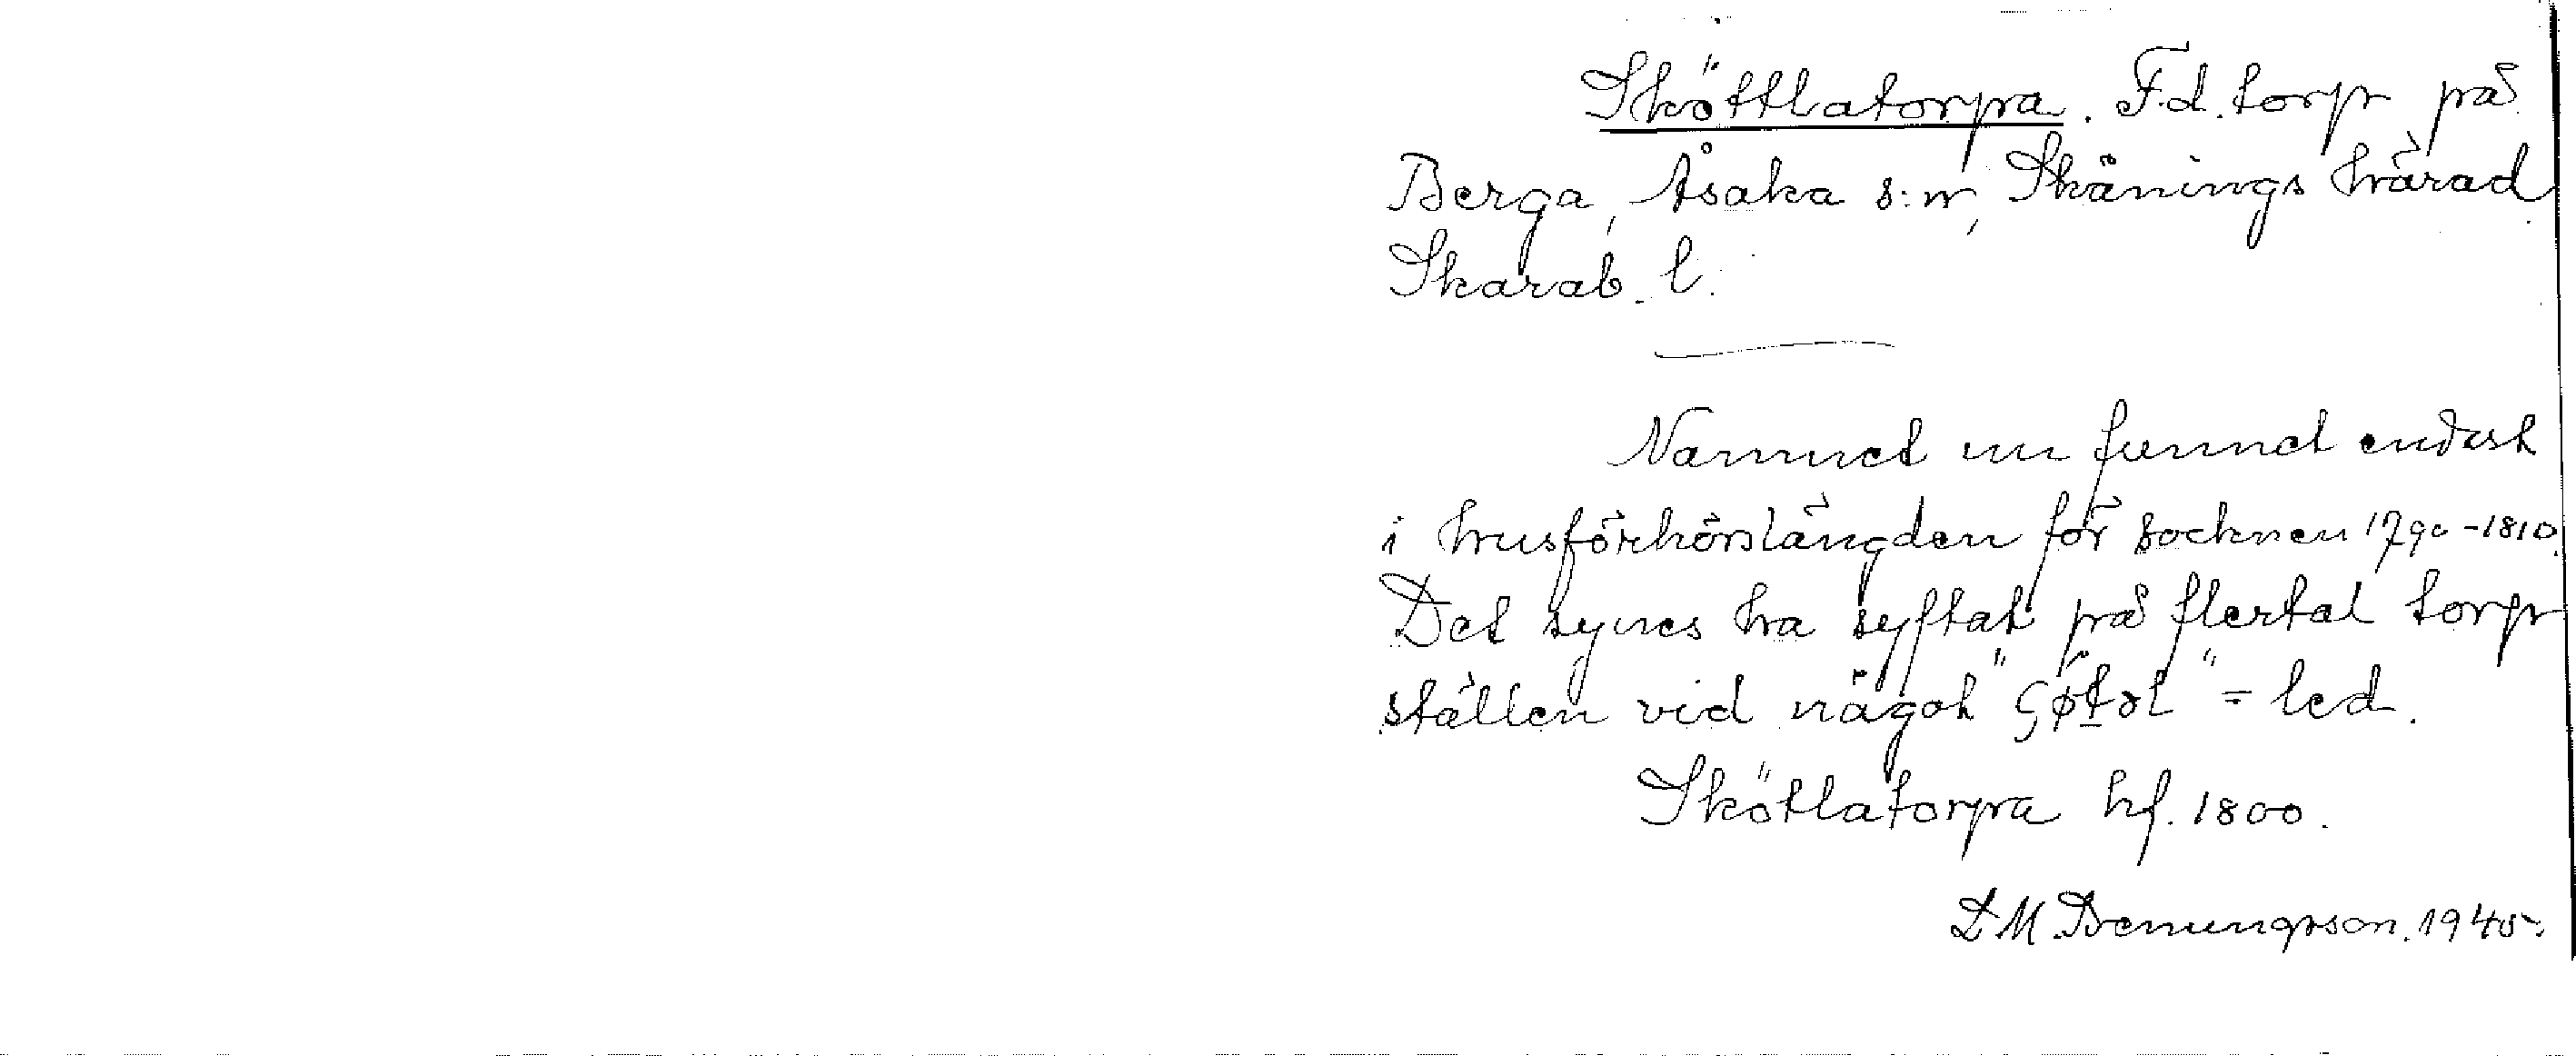 Sköttlatorpa. F.d. torp på
Berga, Åsaka s:n, Skånings härad
Skarab. l.
Namnet nu funnet endast
i husförhörslängden för socknen 1790-1810.
Det synes ha syftat på flertal torp
ställen vid något "ʕøtəl" = led.
Skötlatorpa hf. 1800.
L M. Svenungsson. 1945.